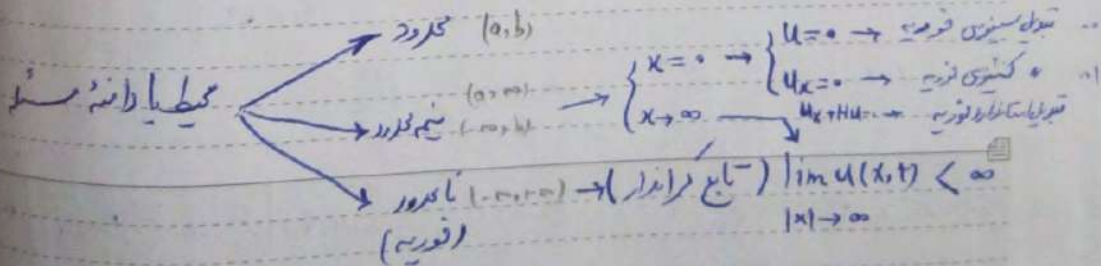 محیط یا دامنهٔ مسئله
محدود (a,b)
نیمه محدود (a,∞) (-∞,b)
x=0 → u=0 → تبدیل سینوسی فوریه
u_x=0 → کسینوسی فوریه
u_x+Hu=0 → فوریه
x→∞
نامحدود (-∞,+∞) → (تابع کراندار) lim u(x,t) < ∞
|x|→∞
(فوریه)